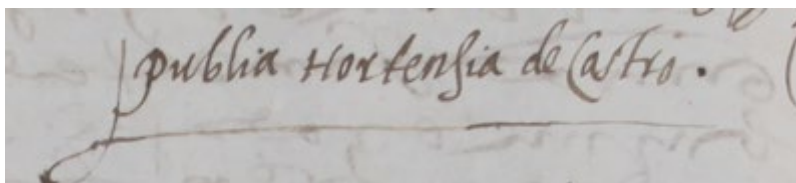 publia Hortensia de Castro.